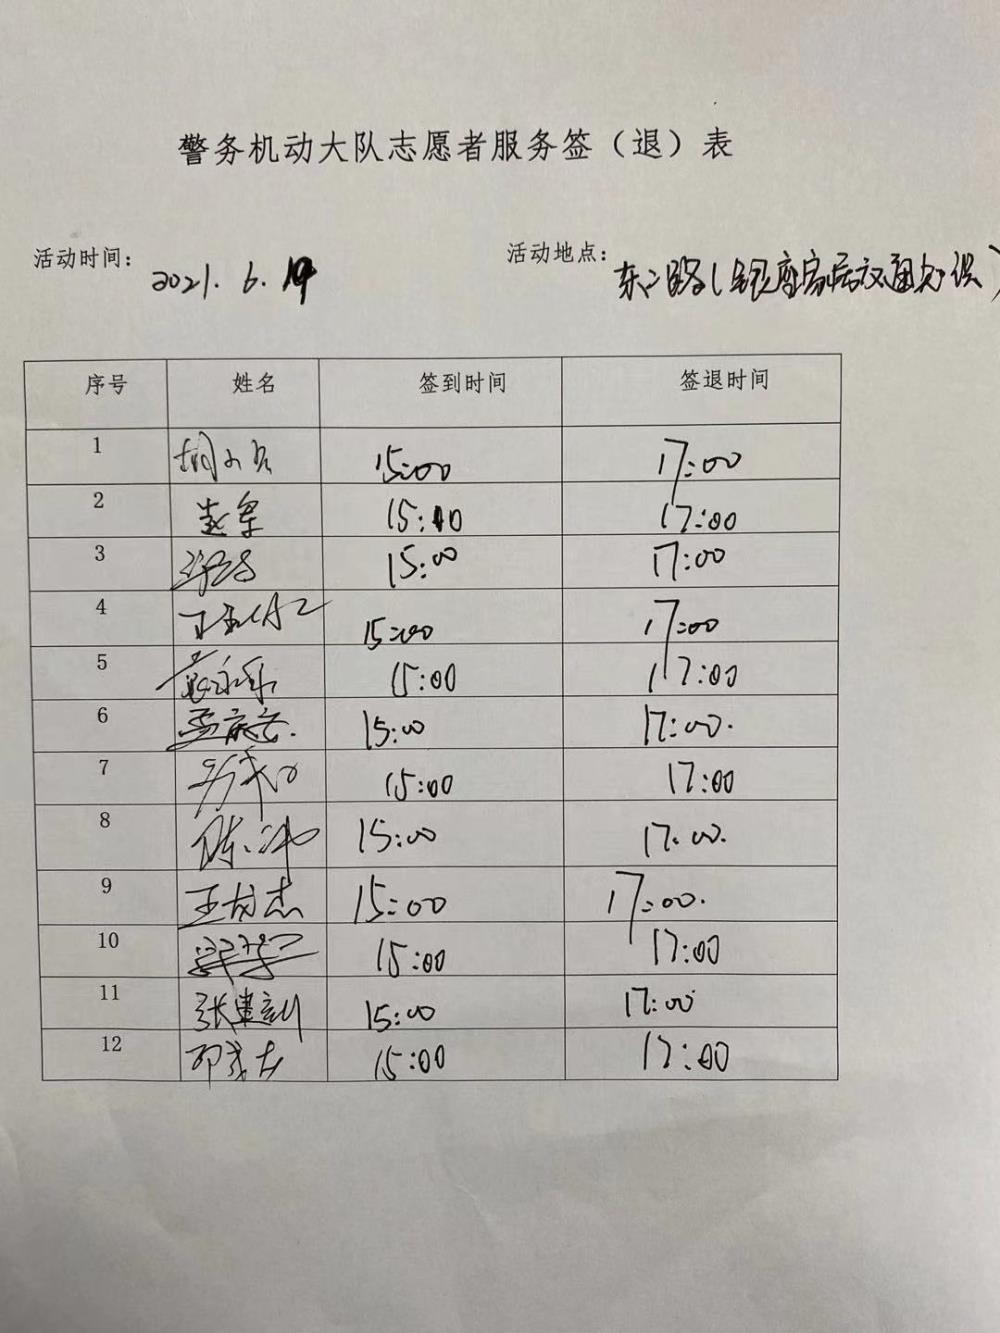 警务机动大队志愿者服务签（退）表
活动时间： 2021.6.19 活动地点： 东二路（银座家居交通
序号 姓名 签到时间 签退时间
1 15:00 17:00
2 赵军 15:10 17:00
3 15:00 17:00
4 15:00 17:00
5 15:00 17:00
6 15:00 17:00.
7 15:00 17:00
8 陈冰 15:00 17:00.
9 15:00 17:00.
10 15:00 17:00
11 张建训 15:00 17:00
12 15:00 17:00